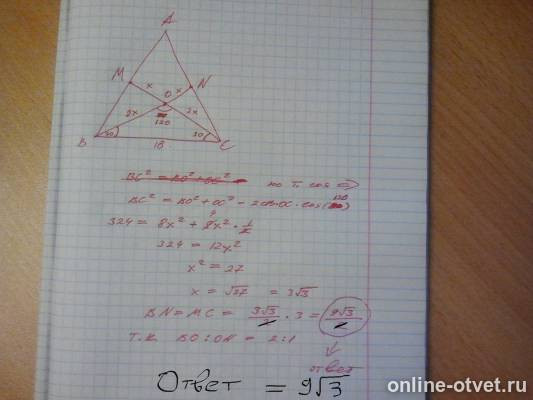 A
M
N
x
O
x
2x
120
2x
30
30
B
18
C
BC² = BO² + OC² по т. cos ⇒
BC² = BO² + OC² - 2OB·OC·cos(120)
324 = 8x² + 8x² · 1/2
324 = 12x²
x² = 27
x = √27 = 3√3
BN = MC = 3√3/2 · 3 = 9√3/2
Т.к. BO : ON = 2:1
ответ
Ответ = 9√3
online-otvet.ru